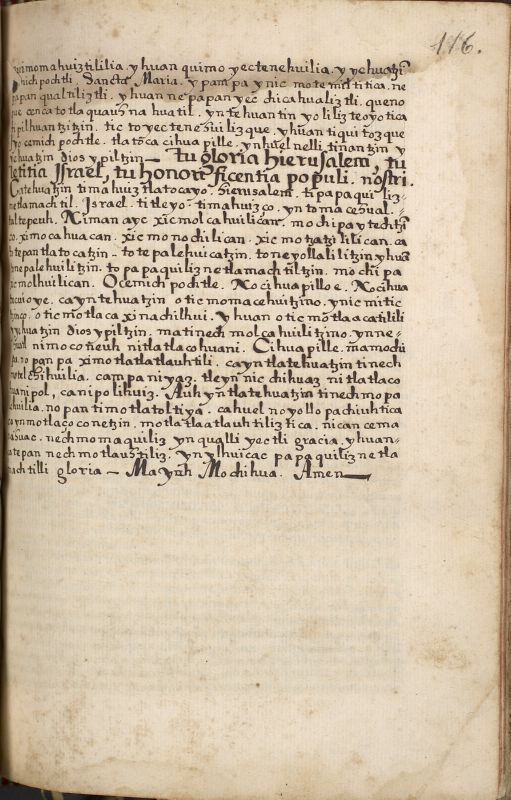 176.
quimomahuiztililia. yhuan quimo yectenehuilia. y yehuatzin
ichpochtli. Sancta Maria. y pampa y nic mo te milti tica. ne
papan qualtiliztli. yhuan ne papan yec chicahualiztli. queno
que cenca totlaquauh na huatil. yn tehuantin yo liliz teoyotica
ti pilhuantzitzin. tic to yectenehui lizque. yhuan tiqui tozque
yyo cemich pochtle. tlatoca cihua pille. ynhuel nelli tinantzin y
yehuatzin dios ypiltzin — tu gloria hierusalem, tu
letitia Israel, tu honorificentia populi. nostri.
Ca tehuatzin timahuiz tlatocayo. Hierusalem. ti pa pa qui liz-
netlamachtil. Israel. ti tleyo. timahuizco. yn to ma cehual.-
tal tepeuh. Niman aye xicmolcahuilican. mochipa y techtzin
co. ximocahuacan. xicmo nochilican. xicmotzatzililican. ca
totepantlatocatzin- totepalehuicatzin. to ne yollalilitzin yhua
tonepalehuilitzin. to papaquiliznetlamachtiltzin. mochipa
xicmolhuilican. O cemich pochtle. No cihuapilloe. No cihua
tecuioye. cayn tehuatzin otic momacehuitzino. ynic mitic
tzinco. otic motlaca xinachilhui. yhuan otic motlaacatilili
yyehuatzin dios ypiltzin. matinech molcahuilitzino. ynne-
huatl nimocneuh nitlatlacohuani. Cihuapille. mamochi
pa. nopanpa ximotlatlatlauhtili. cayn tlatehuatzin tinech
motelchihuilia. campa niyaz. tleyn nic chihuaz nitlatlaco
huanipol, canipolihuiz. Auh yntlatehuatzin tinechmopa
lehuilia. nopan timotlatoltiya. cahuel noyollo pachiuhtica
caynmotlaçoconetzin. motlatlatlauhtiliztica. nican cema
nahuac. nechmomaquiliz yn qualli yectli gracia. yhuan-
çatepan nechmotlauhtiliz. ynylhuicac papaquiliznetla
machtilli gloria — Ma yuh Mochihua. Amen—